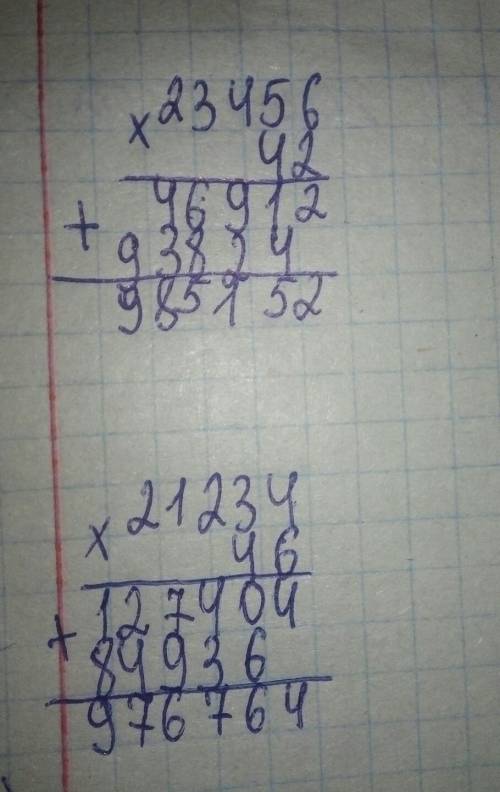 × 23456
42
+ 46912
93824
985152
× 21234
46
+ 127404
84936
976764